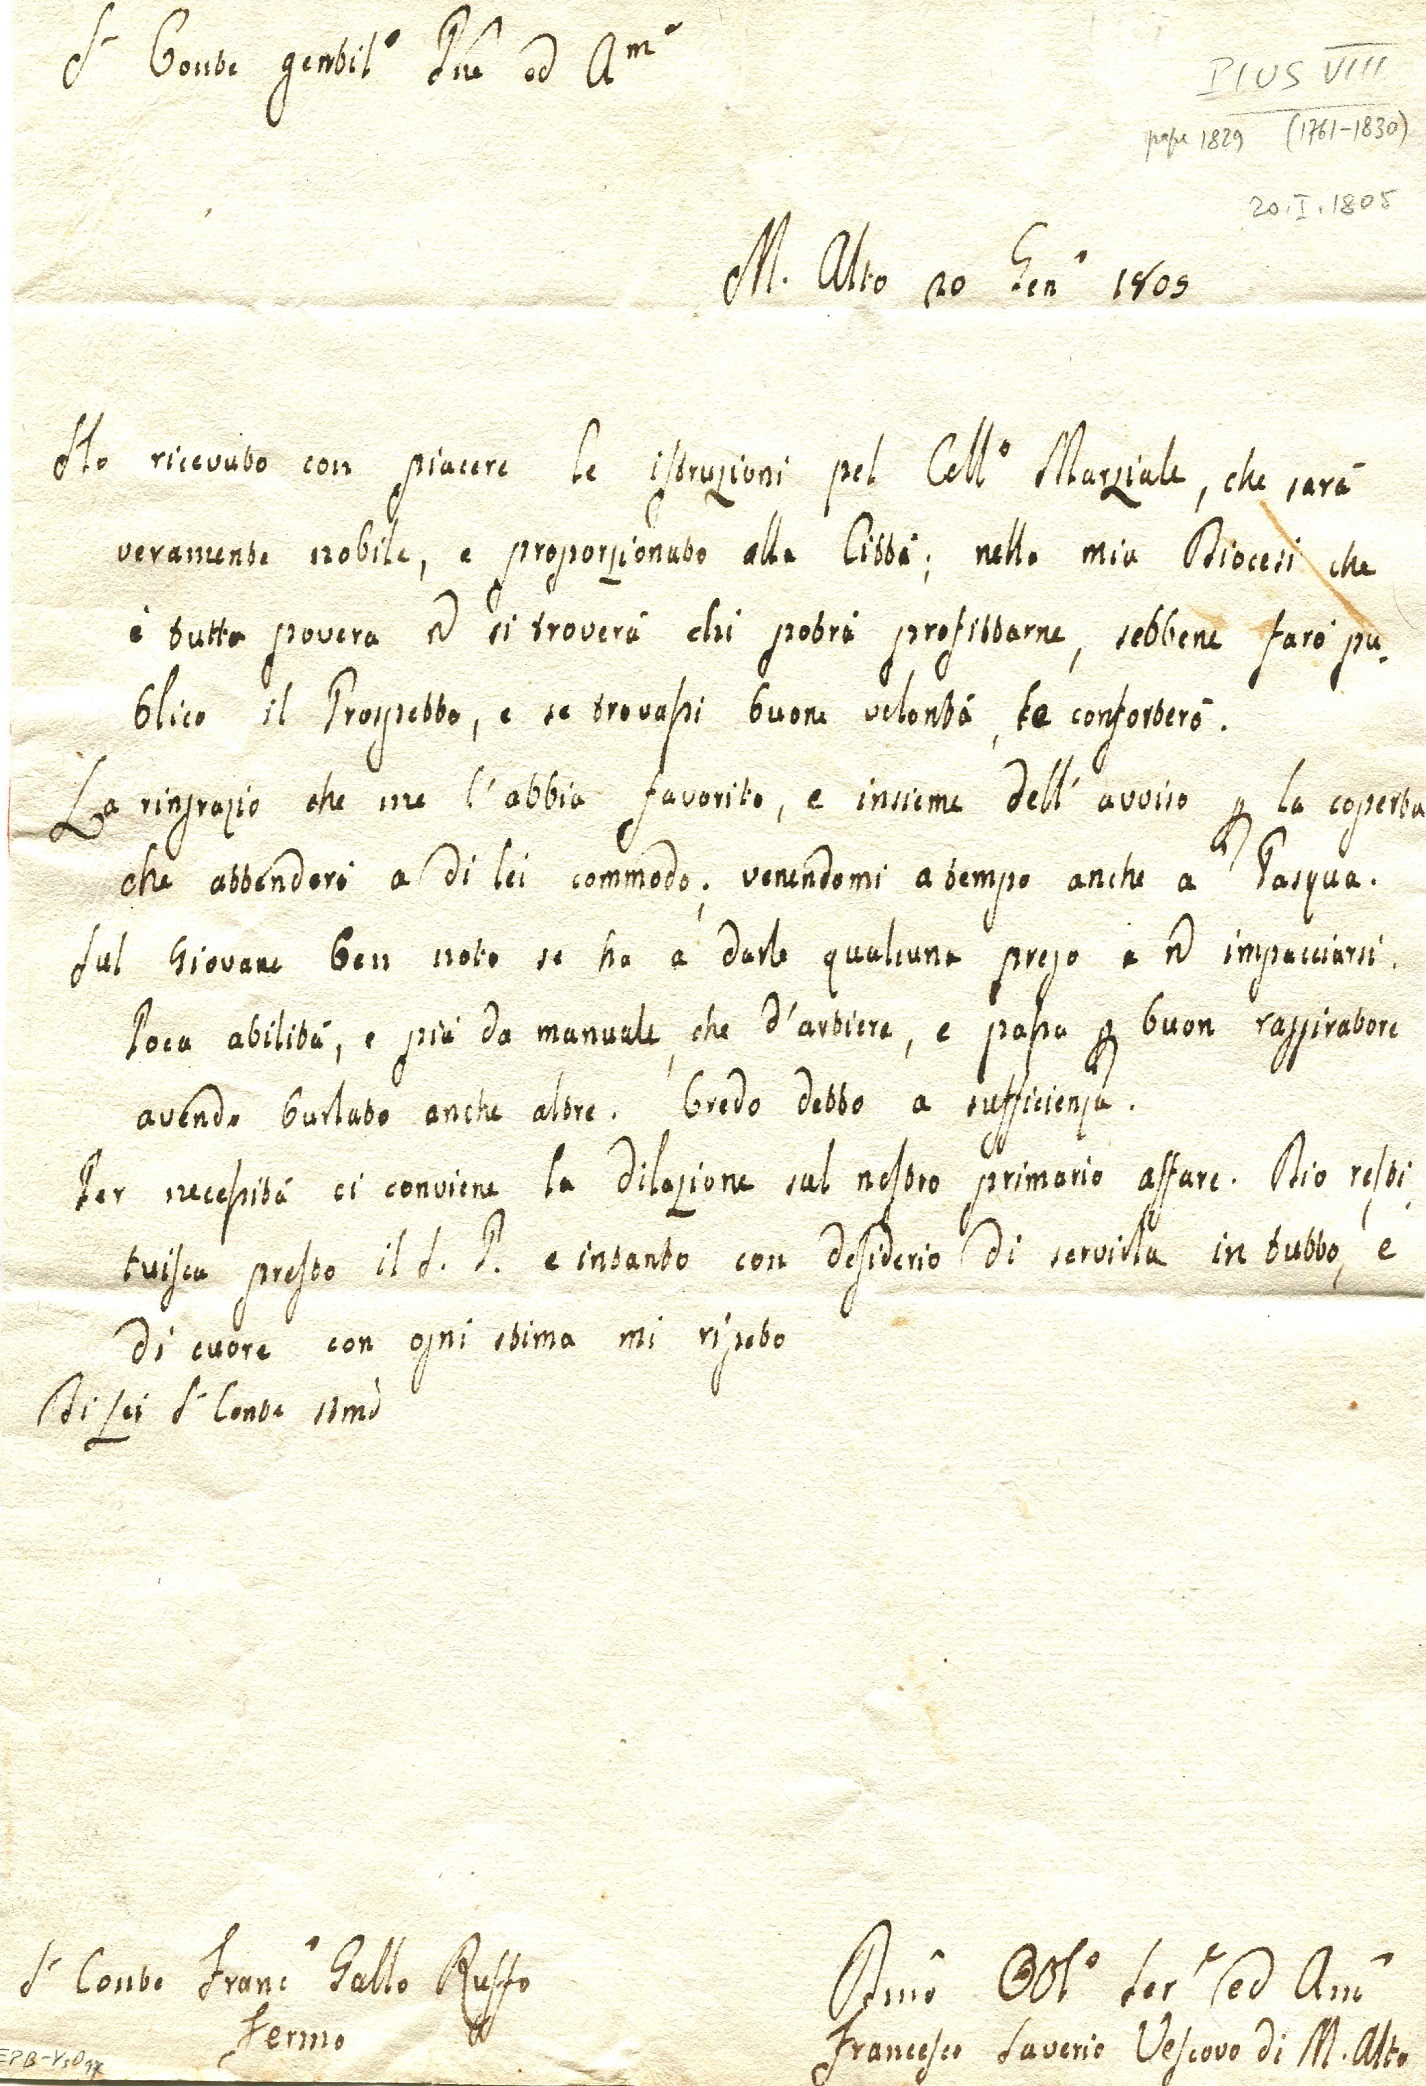 Sr Conte gentilo Pne ed Amo
PIUS VIII
pape 1829 (1761-1830)
20.I.1805
M. Alto 20 Geno 1805
Ho ricevuto con piacere le istruzioni pel Collo Marziale, che sarà
veramente nobile, e proporzionato alla Città; nella mia Diocesi che
è tutta povera ñ si troverà chi potrà profittarne, sebbene farò pu-
blico il Prospetto, e se trovassi buone volontà, le conforterò.
La ringrazio che me l'abbia favorito, e insieme dell'avviso ꝑ la coperta
che attenderò a di lei commodo, venendomi a tempo anche a Pasqua.
Sul Giovane ben noto se ha a darle qualcuna prego a ñ impacciarsi.
Poca abilità, e più da manuale, che d'artiere, e passa ꝑ buon raggiratore
avendo burlato anche altre. Credo detto a sufficienza.
Per necessità ci conviene la dilazione sul nostro primario affare. Dio resti-
tuisca presto il S. P. e intanto con desiderio di servirla in tutto, e
di cuore con ogni stima mi ripeto
Di Lei Sr Conte
Sr Conte Franco Gallo Ruffo
Fermo
Dmo Obblo Ser ed Amo
Francesco Saverio Vescovo di M. Alto